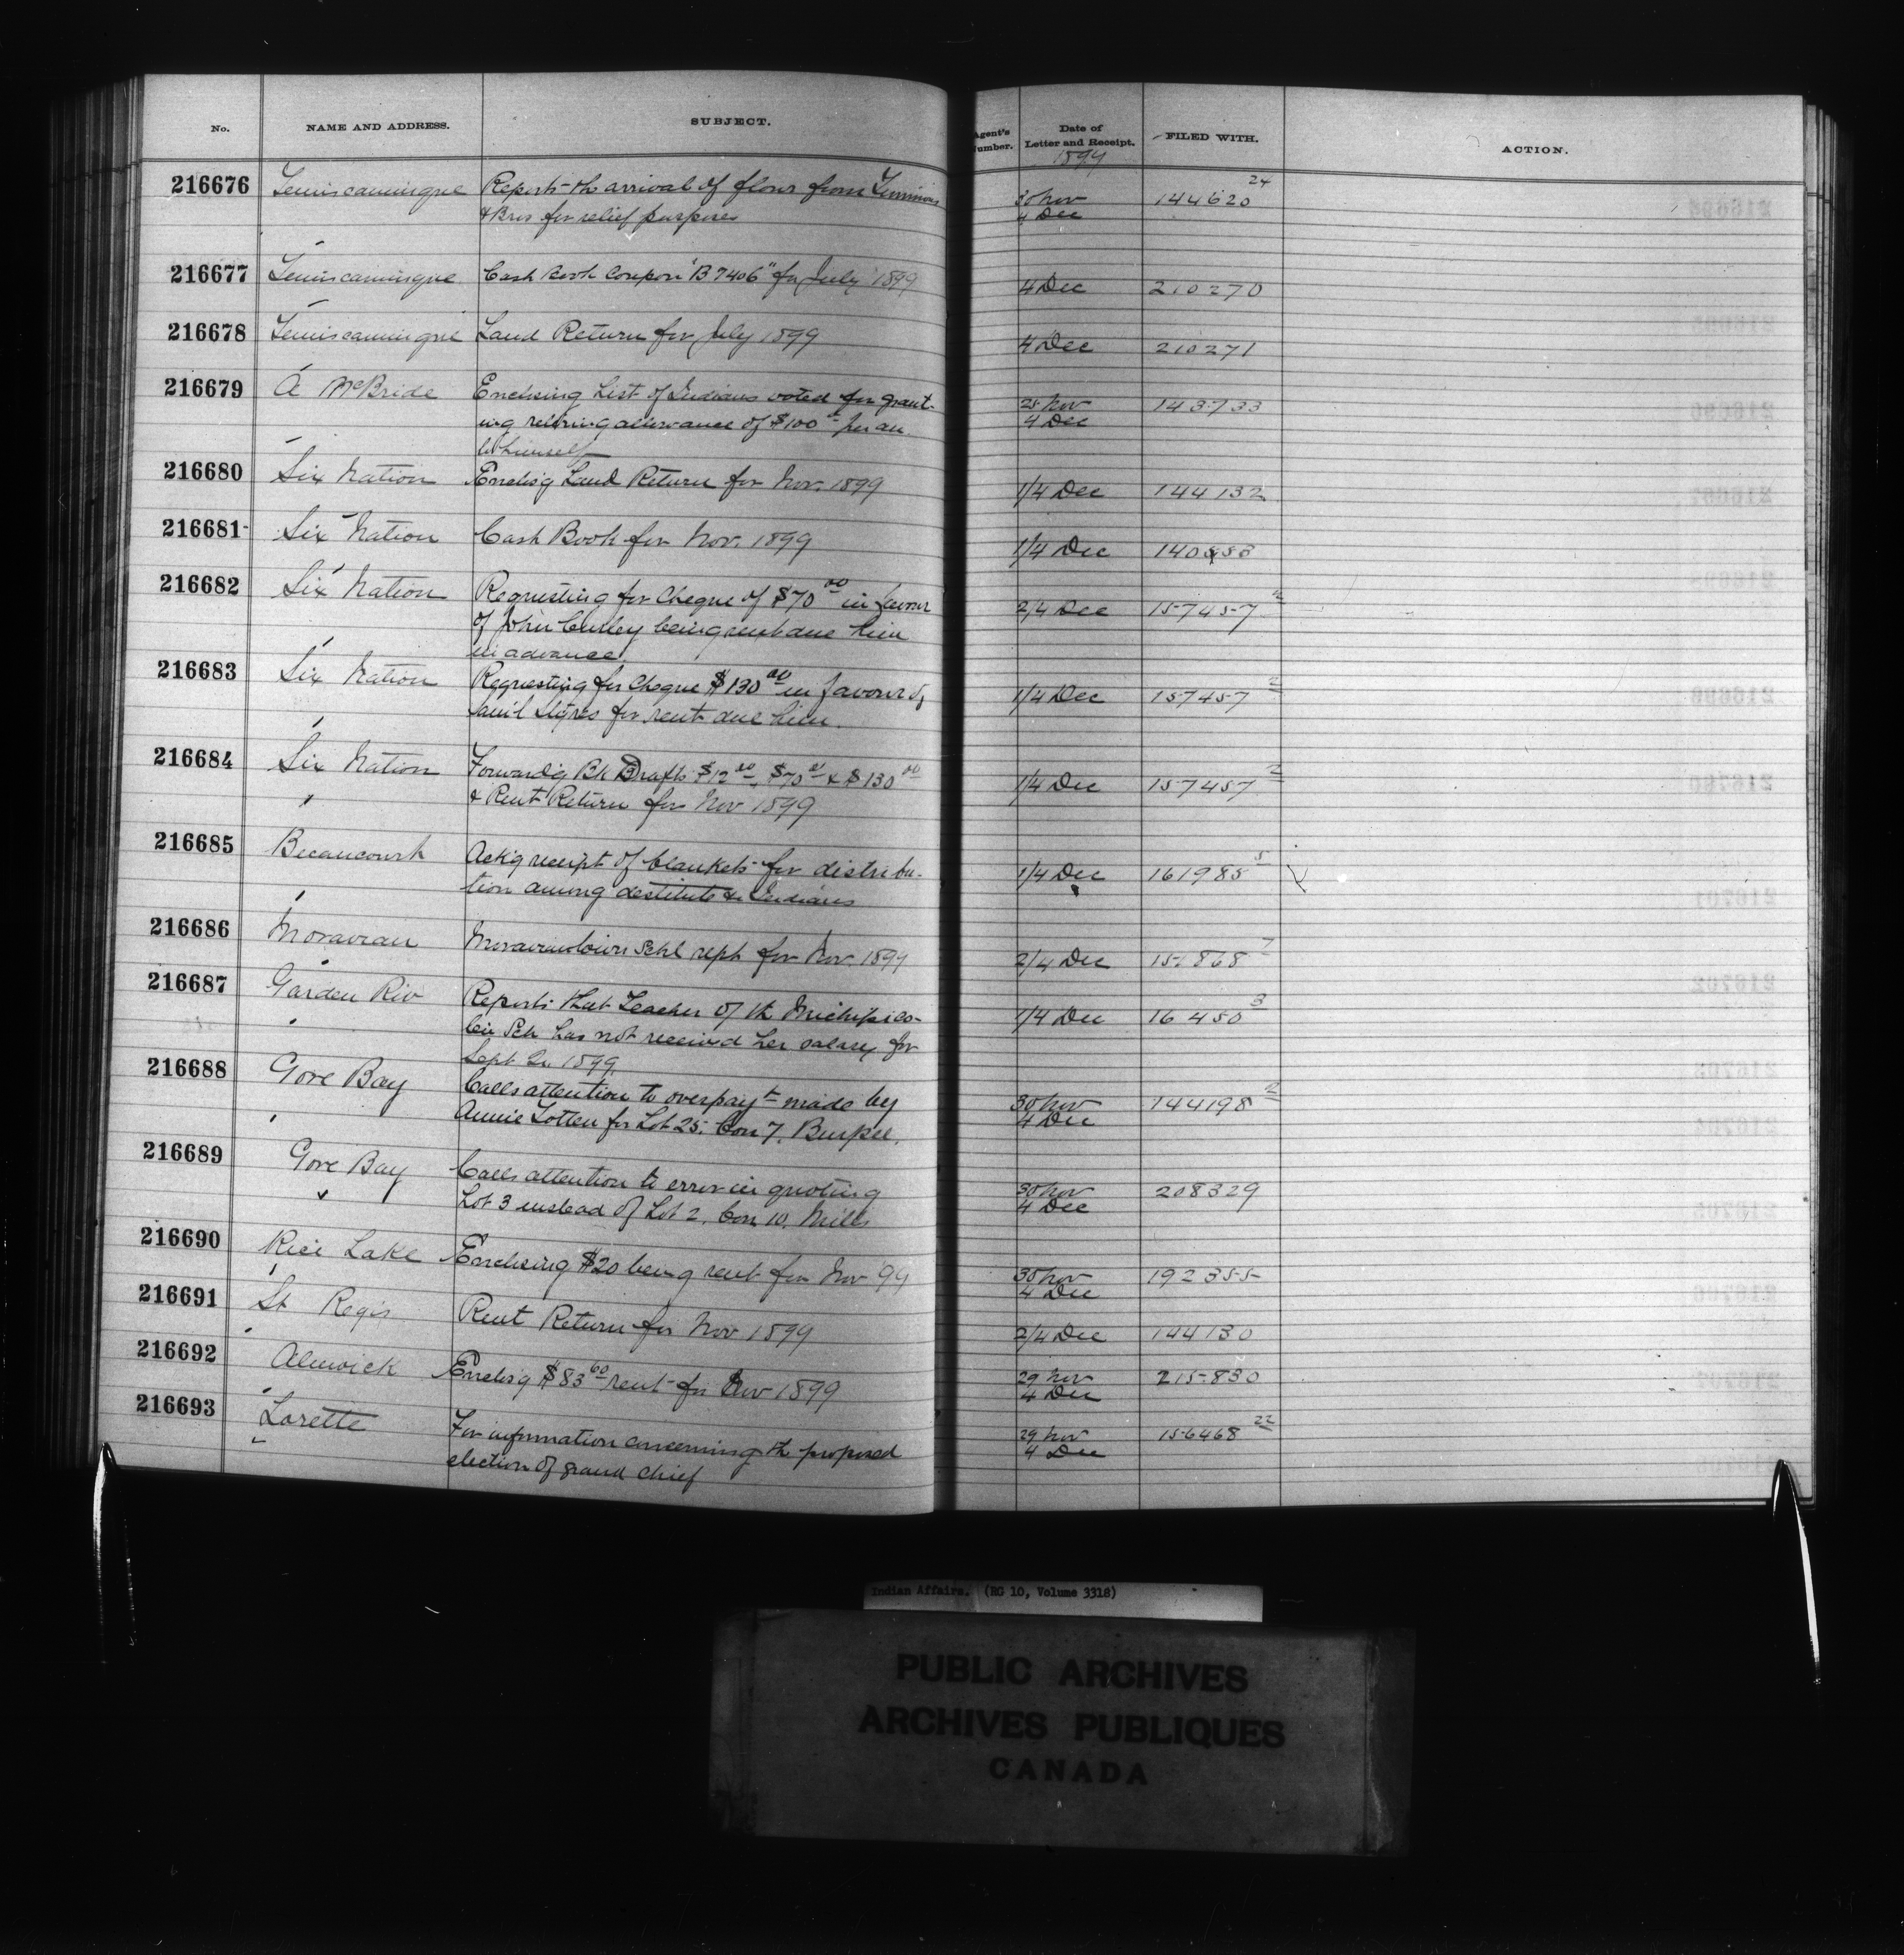 No. NAME AND ADDRESS. SUBJECT. Agent's Number. Date of Letter and Receipt. FILED WITH. ACTION.
1899
216676 Temiscamingue Reports the arrival of flour from 30 Nov 144620 24
& Bros for relief purposes 4 Dec
216677 Temiscamingue Cash Book Coupon "B7406" for July 1899 4 Dec 210270
216678 Temiscamingue Land Return for July 1899 4 Dec 210271
216679 A McBride Enclosing List of Indians voted for grant- 25 Nov 143733
ing retiring allowance of $100 per an. 4 Dec
to himself
216680 Six Nation Enclos'g Land Return for Nov. 1899 1/4 Dec 144132
216681 Six Nation Cash Book for Nov. 1899 1/4 Dec
216682 Six Nation Requesting for Cheque of $70 00 in favour 2/4 Dec 157457 2
of John being rent due him
in advance
216683 Six Nation Requesting for Cheque $130 00 in favour of 1/4 Dec 157457 2
Sam'l for rent due him.
216684 Six Nation Forward'g Bk Drafts $12 , $70 & $130 00 1/4 Dec 157457 2
& Rent Return for Nov 1899
216685 Becancourt Ack'g receipt of blankets for distribu- 1/4 Dec 161985 5
tion among destitute Indians
216686 Moravian Moraviantown Schl rept for Nov. 1899 2/4 Dec 151868 7
216687 Garden Riv Reports that Teacher of the Michipico- 1/4 Dec 16450 3
ten Sch has not received her salary for
Sept Qr. 1899.
216688 Gore Bay Calls attention to overpayt made by 30 Nov 144198 2
Annie Totten for Lot 25. Con 7. Burpee. 4 Dec
216689 Gore Bay Calls attention to error in quoting 30 Nov 208329
Lot 3 instead of Lot 2. Con 10. Mills 4 Dec
216690 Rice Lake Enclosing $20 being rent for Nov 99 30 Nov 192355
4 Dec
216691 St Regis Rent Return for Nov 1899 2/4 Dec 144130
216692 Alnwick Enclos'g $83 60 rent for Nov 1899 29 Nov 215830
4 Dec
216693 Lorette For information concerning the proposed 29 Nov 156468 22
election of grand chief 4 Dec
Indian Affairs. (RG 10, Volume 3318)
PUBLIC ARCHIVES
ARCHIVES PUBLIQUES
CANADA